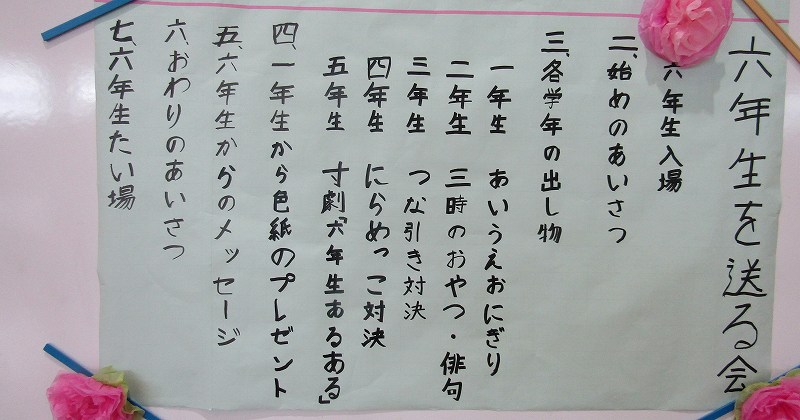 六年生を送る会
六年生入場
二、始めのあいさつ
三、各学年の出し物
一年生 あいうえおにぎり
二年生 三時のおやつ・俳句
三年生 つな引き対決
四年生 にらめっこ対決
五年生 寸劇「六年生あるある」
四、一年生から色紙のプレゼント
五、六年生からのメッセージ
六、おわりのあいさつ
七、六年生たい場